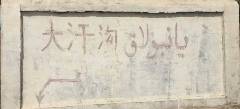 大汗沟 يانبۇلاق